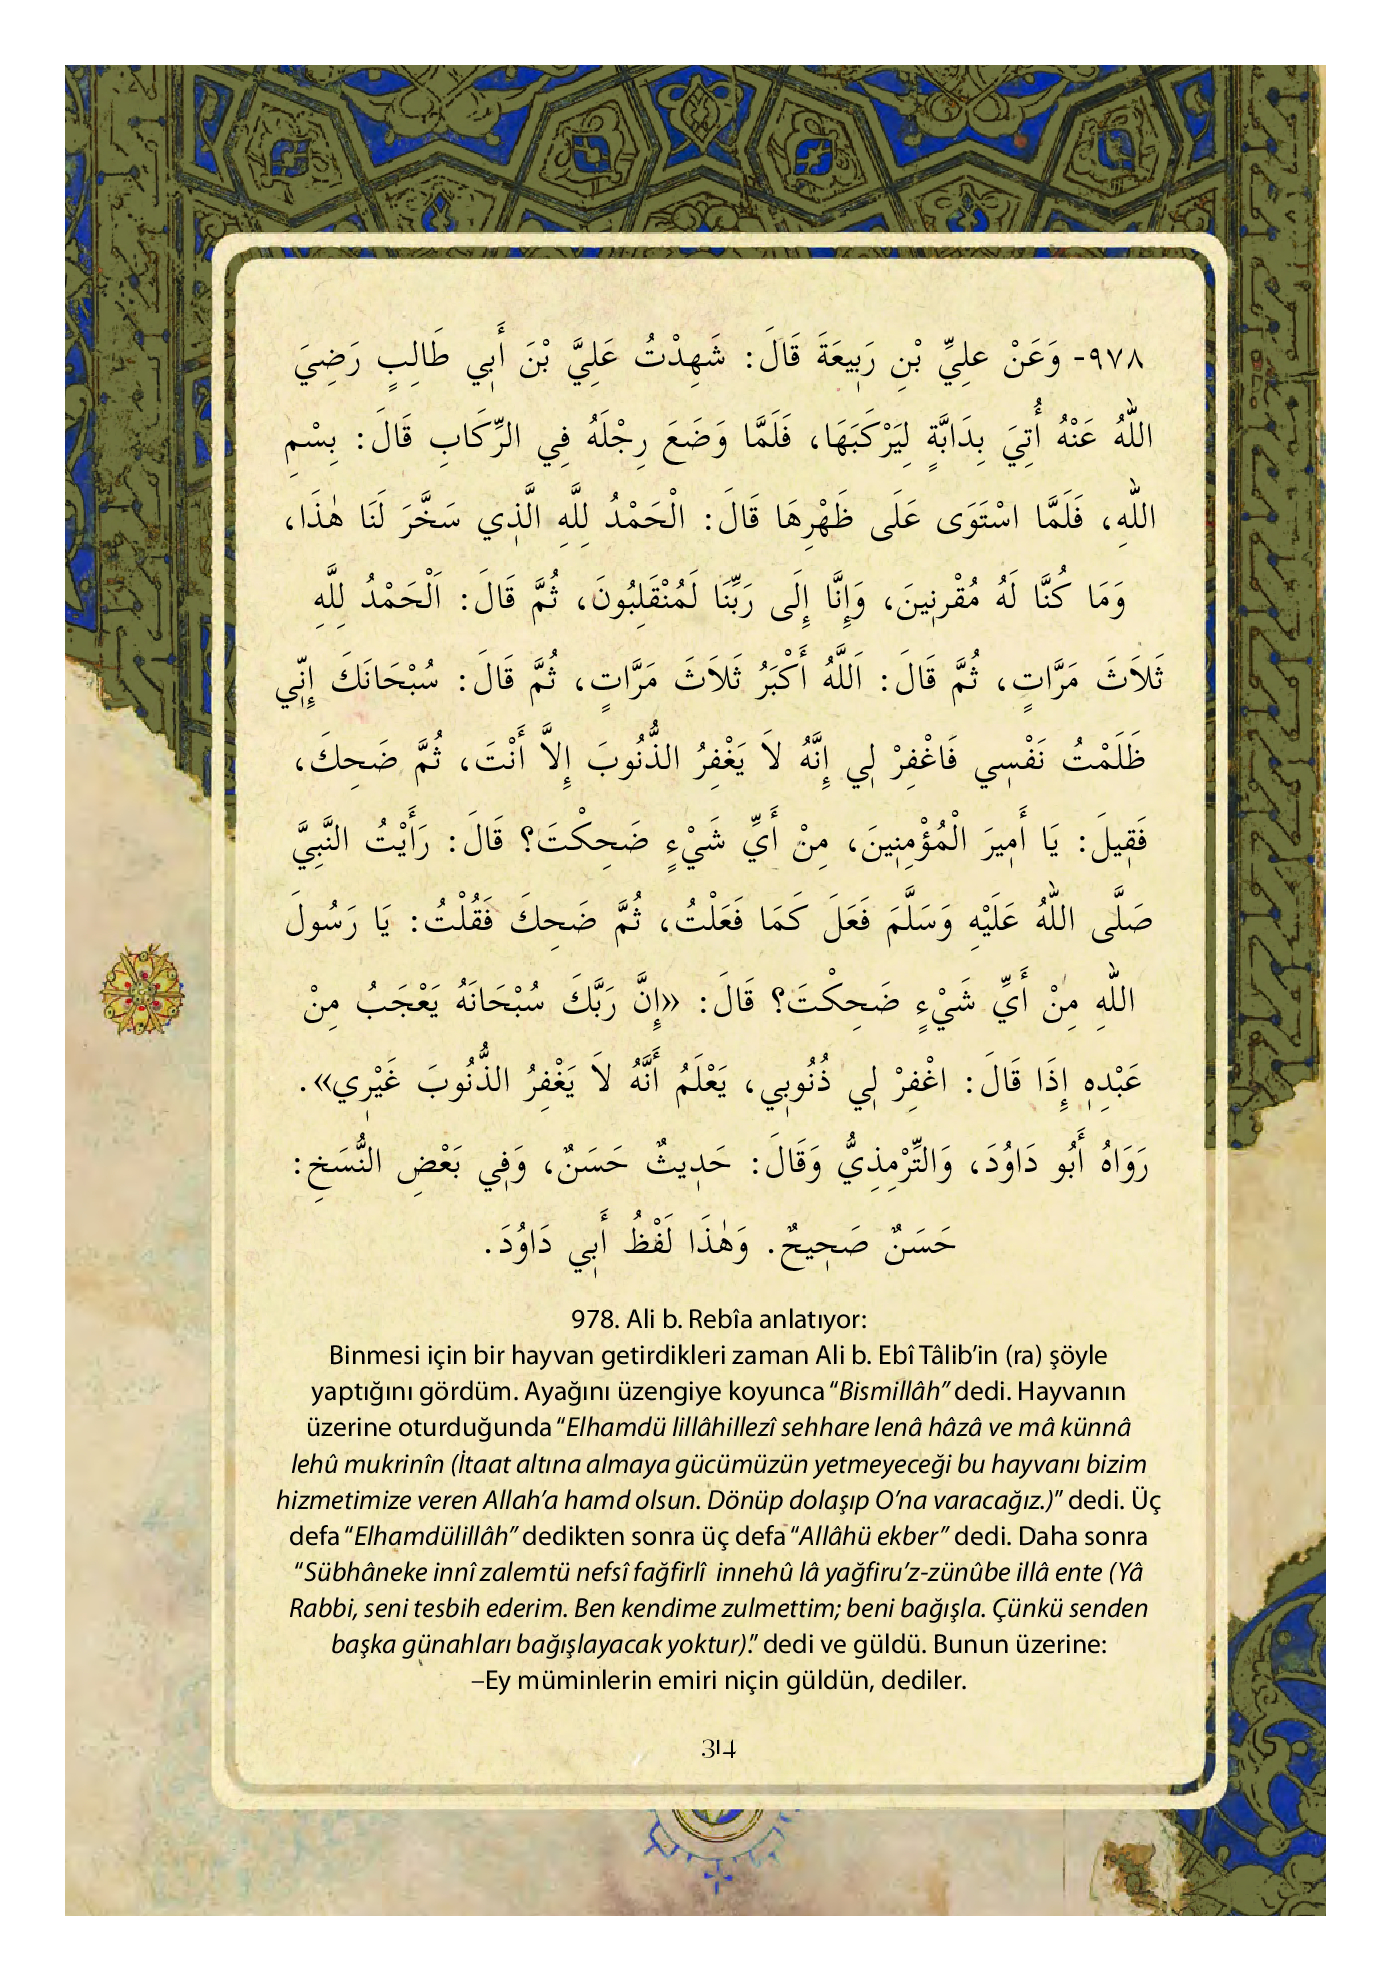 ٩٧٨- وَعَنْ علِيِّ بْنِ رَبِيعَةَ قَالَ: شَهِدْتُ عَلِيَّ بْنَ أَبِي طَالِبٍ رَضِيَ
اللّٰهُ عَنْهُ أُتِيَ بِدَابَّةٍ لِيَرْكَبَهَا، فَلَمَّا وَضَعَ رِجْلَهُ فِي الرِّكَابِ قَالَ: بِسْمِ
اللّٰهِ، فَلَمَّا اسْتَوَى عَلَى ظَهْرِهَا قَالَ: الْحَمْدُ لِلَّهِ الَّذِي سَخَّرَ لَنَا هٰذَا،
وَمَا كُنَّا لَهُ مُقْرِنِينَ، وَإِنَّا إِلَى رَبِّنَا لَمُنْقَلِبُونَ، ثُمَّ قَالَ: اَلْحَمْدُ لِلَّهِ
ثَلاَثَ مَرَّاتٍ، ثُمَّ قَالَ: اَللَّهُ أَكْبَرُ ثَلاَثَ مَرَّاتٍ، ثُمَّ قَالَ: سُبْحَانَكَ إِنِّي
ظَلَمْتُ نَفْسِي فَاغْفِرْ لِي إِنَّهُ لاَ يَغْفِرُ الذُّنُوبَ إِلاَّ أَنْتَ، ثُمَّ ضَحِكَ،
فَقِيلَ: يَا أَمِيرَ الْمُؤْمِنِينَ، مِنْ أَيِّ شَيْءٍ ضَحِكْتَ؟ قَالَ: رَأَيْتُ النَّبِيَّ
صَلَّى اللّٰهُ عَلَيْهِ وَسَلَّمَ فَعَلَ كَمَا فَعَلْتُ، ثُمَّ ضَحِكَ فَقُلْتُ: يَا رَسُولَ
اللّٰهِ مِنْ أَيِّ شَيْءٍ ضَحِكْتَ؟ قَالَ: «إِنَّ رَبَّكَ سُبْحَانَهُ يَعْجَبُ مِنْ
عَبْدِهِ إِذَا قَالَ: اغْفِرْ لِي ذُنُوبِي، يَعْلَمُ أَنَّهُ لاَ يَغْفِرُ الذُّنُوبَ غَيْرِي».
رَوَاهُ أَبُو دَاوُدَ، وَالتِّرْمِذِيُّ وَقَالَ: حَدِيثٌ حَسَنٌ، وَفِي بَعْضِ النُّسَخِ:
حَسَنٌ صَحِيحٌ. وَهٰذَا لَفْظُ أَبِي دَاوُدَ.
978. Ali b. Rebîa anlatıyor:
Binmesi için bir hayvan getirdikleri zaman Ali b. Ebî Tâlib’in (ra) şöyle
yaptığını gördüm. Ayağını üzengiye koyunca “Bismillâh” dedi. Hayvanın
üzerine oturduğunda “Elhamdü lillâhillezî sehhare lenâ hâzâ ve mâ künnâ
lehû mukrinîn (İtaat altına almaya gücümüzün yetmeyeceği bu hayvanı bizim
hizmetimize veren Allah’a hamd olsun. Dönüp dolaşıp O’na varacağız.)” dedi. Üç
defa “Elhamdülillâh” dedikten sonra üç defa “Allâhü ekber” dedi. Daha sonra
“Sübhâneke innî zalemtü nefsî fağfirlî innehû lâ yağfiru’z-zünûbe illâ ente (Yâ
Rabbi, seni tesbih ederim. Ben kendime zulmettim; beni bağışla. Çünkü senden
başka günahları bağışlayacak yoktur).” dedi ve güldü. Bunun üzerine:
–Ey müminlerin emiri niçin güldün, dediler.
314